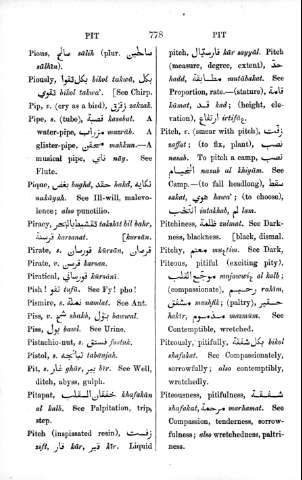 PIT 778 PIT
Pious, صالح sâlih (plur. صالحين
sâlhîn).
Piously, بكل تقوا bikol takwâ, بكل
تقوي bikol takwa'. [See Chirp.
Pip, s. (cry as a bird), زقزق zakzak.
Pipe, s. (tube), قصبة kasabat. A
water-pipe, مزراب mazrâb. A
glister-pipe, محقن mahkun.—A
musical pipe, ناي nây. See
Flute.
Pique, بغض bughd, حقد hakd, نكاية
nakâyah. See Ill-will, malevo-
lence; also punctilio.
Piracy, تقشيط بالبحر takshît bil bahr,
قرصنة karsanat. [kursân.
Pirate, s. قورسان kûrsân, قرصان
Pirate, v. قرصن karsan.
Piratical, قورساني kûrsânî.
Pish! تفو tufû. See Fy! pho!
Pismire, s. نملة namlat. See Ant.
Piss, v. شخ shakh, بوّل bawwal.
Piss, بول bawl. See Urine.
Pistachio-nut, s. فستق fustuk.
Pistol, s. طبنجه tabânjah.
Pit, s. غار ghâr, بير bîr. See Well,
ditch, abyss, gulph.
Pitapat, خفقان القلب khafakân
al kalb. See Palpitation, trip,
step.
Pitch (inspissated resin), زفت
zift, قار kâr, قير kîr. Liquid
pitch, قار سيّال kâr sayyâl. Pitch
(measure, degree, extent), حد
hadd, مطابقة mutâbakat. See
Proportion, rate.—(stature), قامة
kâmat, قد kad; (height, ele-
vation), ارتفاع irtifâg.
Pitch, v. (smear with pitch), زفّت
zaffat; (to fix, plant), نصب
nasab. To pitch a camp, نصب
الخيام nasab al khiyâm. See
Camp.—(to fall headlong), سقط
sakat, هوي hawa'; (to choose),
انتخب intakhab, لم lam.
Pitchiness, ظلمة zulmat. See Dark-
ness, blackness. [black, dismal.
Pitchy, معتم See Dark,
Piteous, pitiful (exciting pity),
موجع القلب mûjawwiy, al kalb;
(compassionate), رحيم rahîm,
مشفق mashfik; (paltry), حقير
hakîr, مذموم mazmûm. See
Contemptible, wretched.
Piteously, pitifully, بكل شفقة bikol
shafakat. See Compassionately,
sorrowfully; also contemptibly,
wretchedly.
Piteousness, pitifulness, شفقة
shafakat, مرحمة marhamat. See
Compassion, tenderness, sorrow-
fulness; also wretchedness, paltri-
ness.